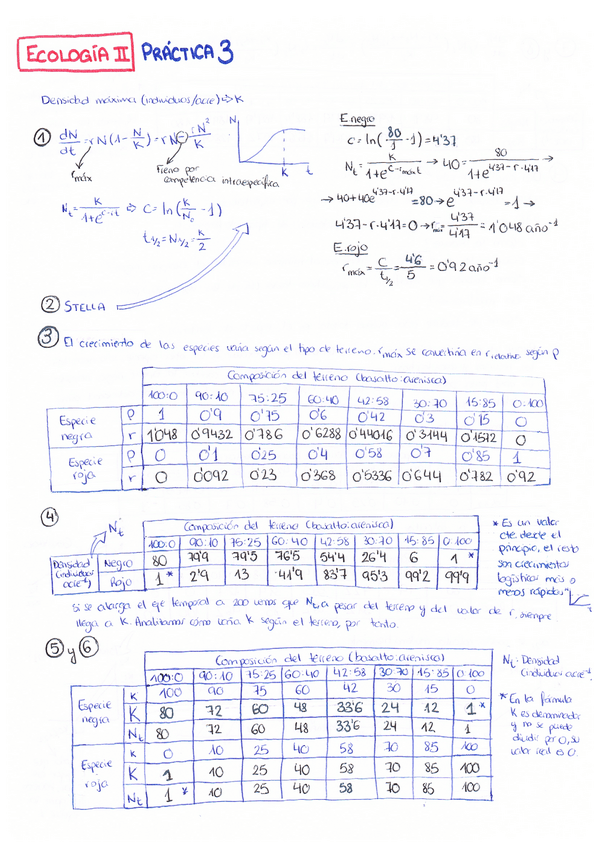 ECOLOGÍA II PRÁCTICA 3
Densidad máxima (individuos/acre) ⇨ K
① dN/dt = rN(1 - N/K) = rN - rN²/K
N
K t
r máx
Freno por competencia intraespecífica
Nt = K/(1+e^(c-rt)) ⇨ C = ln(K/N₀ - 1)
t½ = N½ = K/2
E. negro
C = ln(80/1 - 1) = 4'37
Nt = K/(1+e^(c-rmáx t)) → 40 = 80/(1+e^(4'37-r·4'17)) →
→ 40+40e^(4'37-r·4'17) = 80 → e^(4'37-r·4'17) = 1 →
4'37-r·4'17=0 → r máx = 4'37/4'17 = 1'048 año⁻¹
E. rojo
r máx = C/t½ = 4'6/5 = 0'92 año⁻¹
② STELLA
③ El crecimiento de las especies varía según el tipo de terreno. r máx se convertiría en r según P
Composición del terreno (basalto:arenisca)
100:0 90:10 75:25 60:40 42:58 30:70 15:85 0:100
Especie negra P 1 0'9 0'75 0'6 0'42 0'3 0'15 0
r 1'048 0'9432 0'786 0'6288 0'44016 0'3144 0'1572 0
Especie roja P 0 0'1 0'25 0'4 0'58 0'7 0'85 1
r 0 0'092 0'23 0'368 0'5336 0'644 0'782 0'92
④
Nt
Composición del terreno (basalto:arenisca)
100:0 90:10 75:25 60:40 42:58 30:70 15:85 0:100
Densidad (individuos acre⁻¹) Negro 80 79'9 79'5 76'5 54'4 26'4 6 1 *
Rojo 1 * 2'9 13 41'9 83'7 95'3 99'2 99'9
* Es un valor
cte desde el
principio, el resto
son crecimientos
logísticos más o
menos rápidos"
Si se alarga el eje temporal a 200 vemos que Nt, a pesar del terreno y del valor de r, siempre
llega a K. Analizamos cómo varía K según el terreno, por tanto.
⑤ y ⑥
Composición del terreno (basalto:arenisca)
100:0 90:10 75:25 60:40 42:58 30:70 15:85 0:100
Especie negra K 100 90 75 60 42 30 15 0
K 80 72 60 48 33'6 24 12 1 *
Nt 80 72 60 48 33'6 24 12 1
Especie roja K 0 10 25 40 58 70 85 100
K 1 10 25 40 58 70 85 100
Nt 1 * 10 25 40 58 70 85 100
Nt: Densidad
(individuos acre⁻¹)
* En la fórmula
K es denominador
y no se puede
dividir por 0, su
valor real es 0.